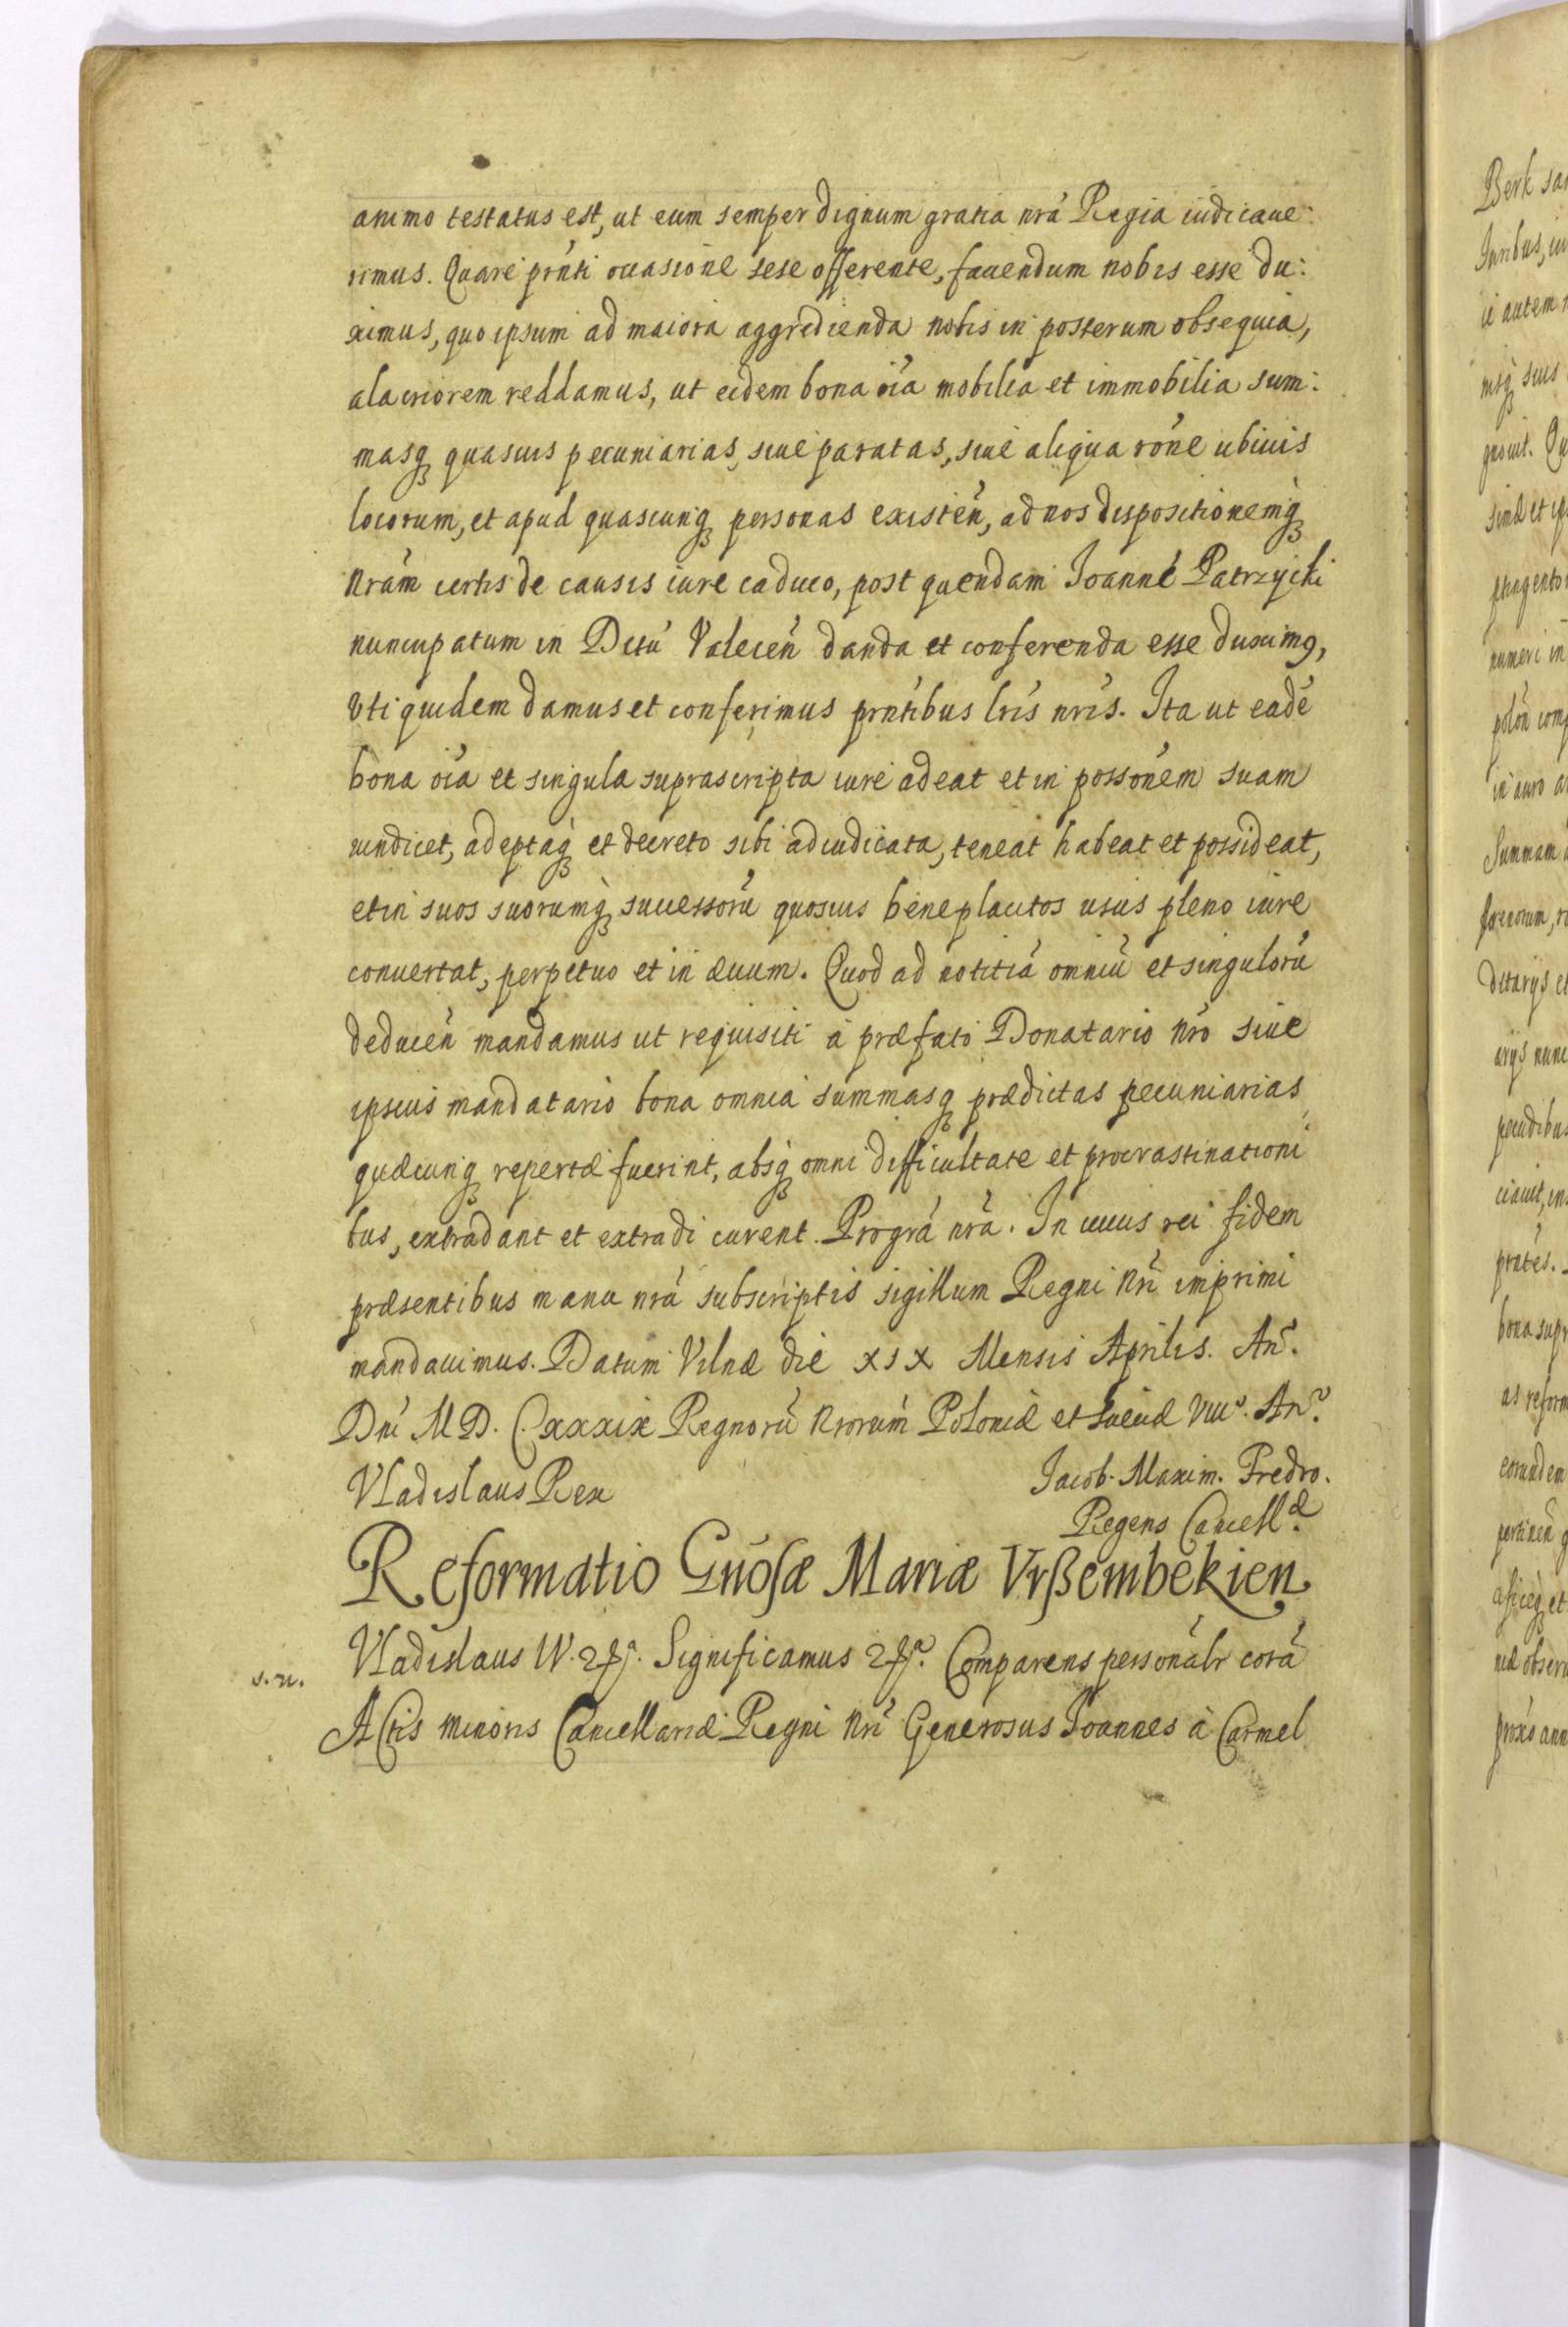 animo testatus est, ut eum semper dignum gratia nrá Regia iudicaue:
rimus. Quare prńti occasione sese offerente, fauendum nobis esse du:
ximus, quo ipsum ad maiora aggredienda nobis in posterum obsequia,
alacriorem reddamus, ut eidem bona oía mobilia et immobilia sum:
masq quasuis pecuniarias, siue paratas, siue aliqua róne ubiuis
locorum, et apud quascunq personas existeń, ad nos dispositionemq
Nrám certis de causis iure caduco, post quendam Joanné Patrzycki
nuncupatum in Dctú Valeceń danda et conferenda esse duximq,
Vti quidem damus et conferimus prńtibus lrís nrís. Ita ut eadé
bona oía et singula suprascripta iure adeat et in possónem suam
uindicet, adeptaq et decreto sibi adiudicata, teneat habeat et possideat,
et in suos suorumq successorú quosuis beneplacitos usus pleno iure
conuertat, perpetuo et in æuum. Quod ad notitiá omniú et singulorú
deduceń mandamus ut requisiti à præfato Donatario nró siue
ipsius mandatario bona omnia summasq prædictas pecuniarias,
quæcunq repertæ fuerint, absq omni difficultate et procrastinationi
bus, extradant et extradi curent. Prográ nrá. In cuius rei fidem
præsentibus manu nrá subscriptis sigillum Regni Nrí imprimi
mandauimus. Datum Vilnæ die XIX Mensis Aprilis. Anº.
Dní M D. C. XXXIX Regnorú Nrorúm Poloniæ et Sueciæ VIIº. Anº.
Vladislaus Rex
Jacob. Maxim. Fredro.
Regens Cancellæ.
Reformatio Gnósæ Mariæ Vrßembekien
s. n.
Vladislaus IV. 2ſſª. Significamus 2ſſª. Comparens personálr corá
Actis minoris Cancellariæ Regni Nrí Generosus Joannes à Carmel
Berk
Juribus,
ic autem
msq suis
gnouit. Qu
simd et
numeri in
polón
in auro
Summam
ditarijs et
arijs nunc
pecudibus
ciauit,
prńtes.
bona supr
as reform
eorundem
pertineń
et
obseru
próxo ann